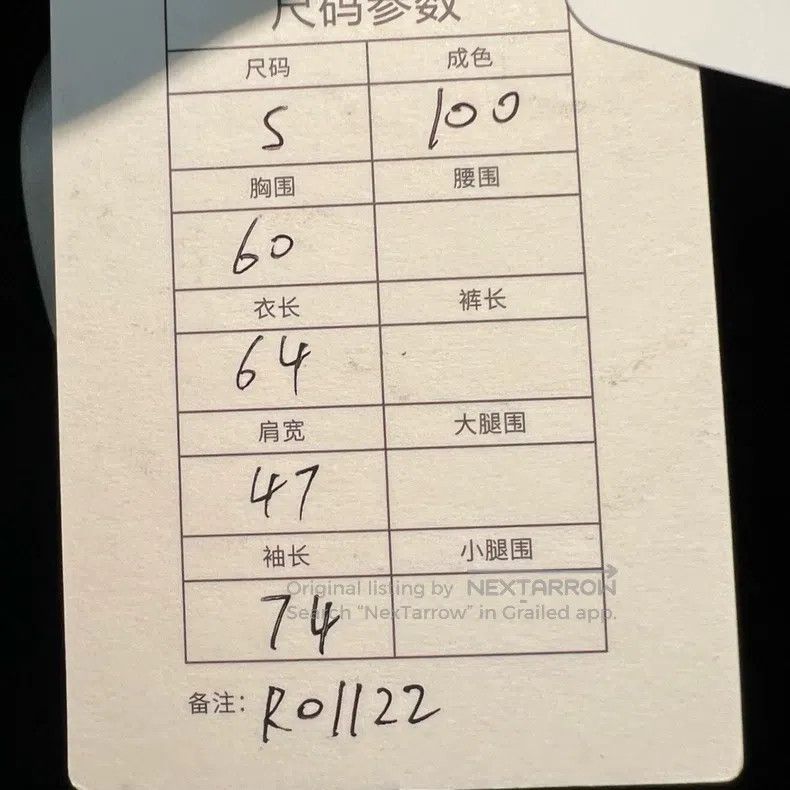 尺码参数
尺码 成色
S 100
胸围 腰围
60
衣长 裤长
64
肩宽 大腿围
47
袖长 小腿围
Original listing by NEXTARROW
Search "NexTarrow" in Grailed app.
74
备注: R01122